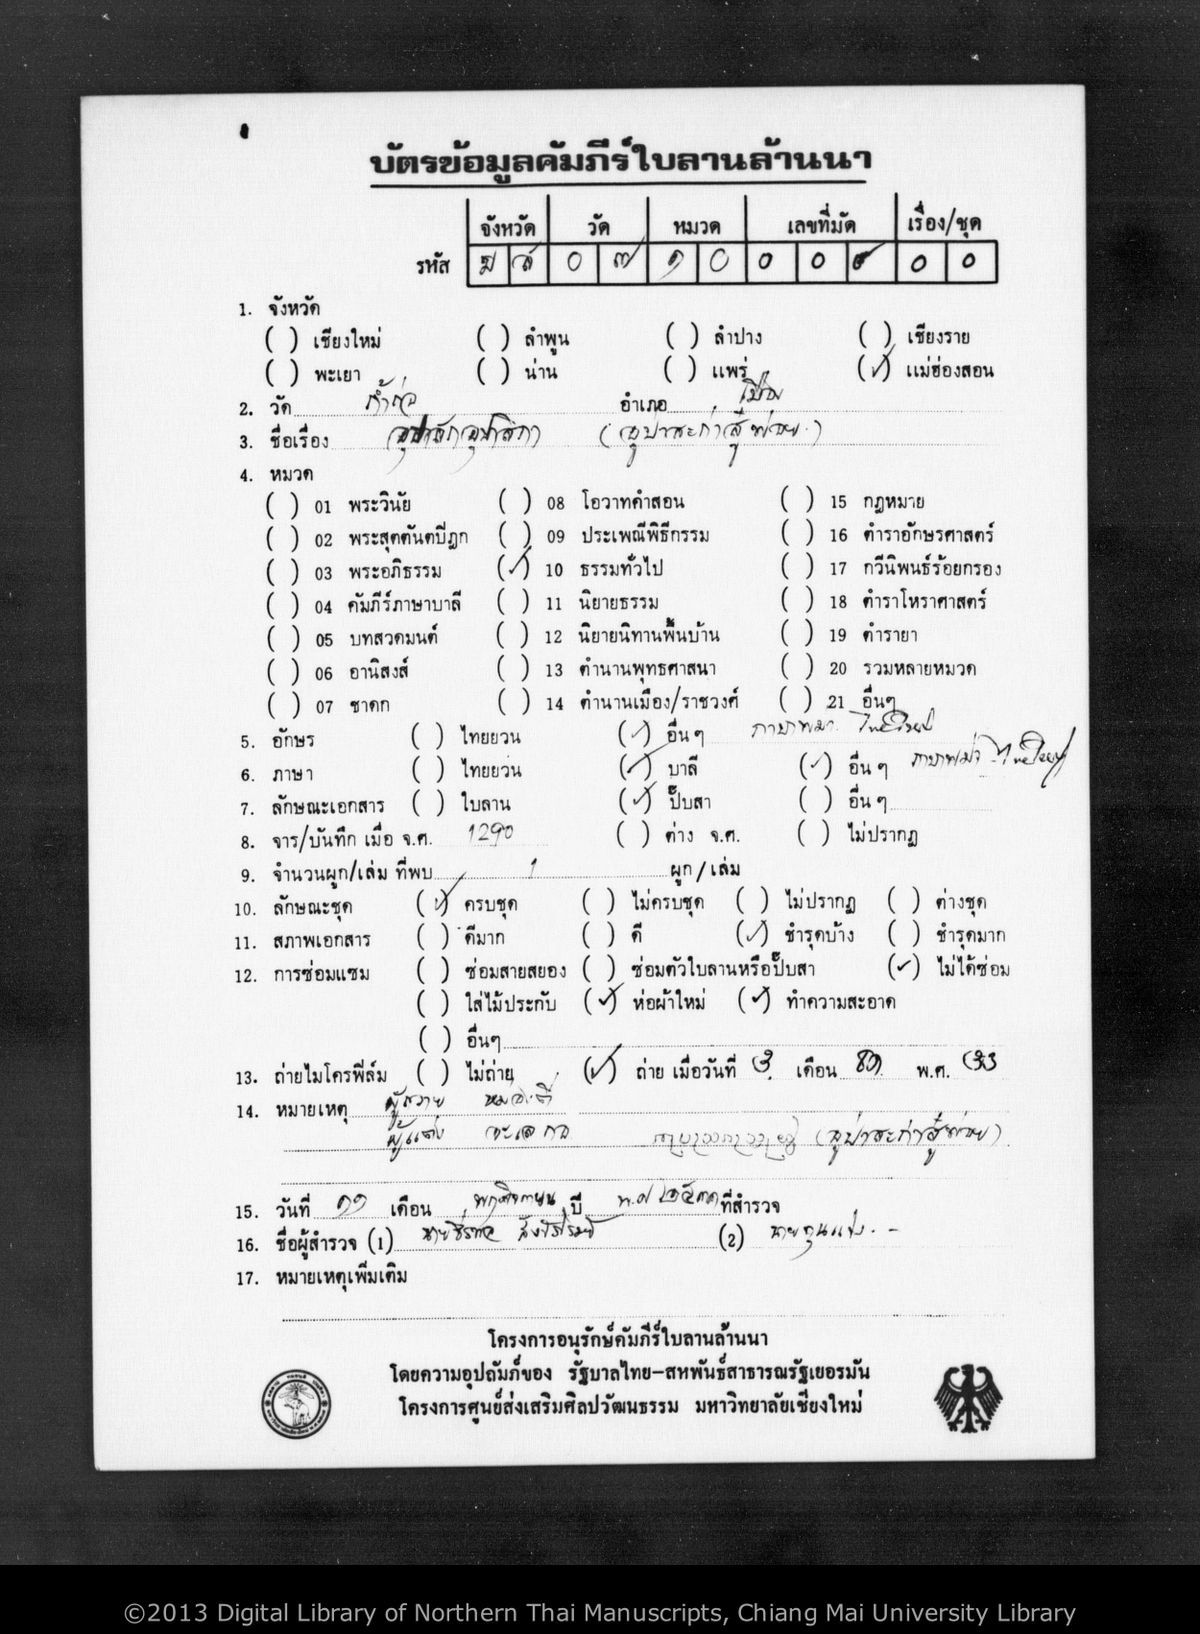 บัตรข้อมูลคัมภีร์ใบลานล้านนา
จังหวัด วัด หมวด เลขที่มัด เรื่อง/ชุด
รหัส ม ส 0 ๗ ๑ 0 0 0 0 0
1. จังหวัด
( ) เชียงใหม่ ( ) ลำพูน ( ) ลำปาง ( ) เชียงราย
( ) พะเยา ( ) น่าน ( ) แพร่ (✓) แม่ฮ่องสอน
2. วัด ก้ำก่อ อำเภอ เมือง
3. ชื่อเรื่อง
4. หมวด
( ) 01 พระวินัย ( ) 08 โอวาทคำสอน ( ) 15 กฎหมาย
( ) 02 พระสุตตันตปิฎก ( ) 09 ประเพณีพิธีกรรม ( ) 16 ตำราอักษรศาสตร์
( ) 03 พระอภิธรรม (✓) 10 ธรรมทั่วไป ( ) 17 กวีนิพนธ์ร้อยกรอง
( ) 04 คัมภีร์ภาษาบาลี ( ) 11 นิยายธรรม ( ) 18 ตำราโหราศาสตร์
( ) 05 บทสวดมนต์ ( ) 12 นิยายนิทานพื้นบ้าน ( ) 19 ตำรายา
( ) 06 อานิสงส์ ( ) 13 ตำนานพุทธศาสนา ( ) 20 รวมหลายหมวด
( ) 07 ชาดก ( ) 14 ตำนานเมือง/ราชวงศ์ ( ) 21 อื่นๆ
5. อักษร ( ) ไทยยวน (✓) อื่นๆ ไทยใหญ่
6. ภาษา ( ) ไทยยวน (✓) บาลี (✓) อื่นๆ ภาษาพม่า-ไทยใหญ่
7. ลักษณะเอกสาร ( ) ใบลาน (✓) ปั๊บสา ( ) อื่นๆ
8. จาร/บันทึก เมื่อ จ.ศ. 1290 ( ) ต่าง จ.ศ. ( ) ไม่ปรากฏ
9. จำนวนผูก/เล่ม ที่พบ 1 ผูก/เล่ม
10. ลักษณะชุด (✓) ครบชุด ( ) ไม่ครบชุด ( ) ไม่ปรากฏ ( ) ต่างชุด
11. สภาพเอกสาร ( ) ดีมาก ( ) ดี (✓) ชำรุดบ้าง ( ) ชำรุดมาก
12. การซ่อมแซม ( ) ซ่อมสายสยอง ( ) ซ่อมตัวใบลานหรือปั๊บสา (✓) ไม่ได้ซ่อม
( ) ใส่ไม้ประกับ (✓) ห่อผ้าใหม่ (✓) ทำความสะอาด
( ) อื่นๆ
13. ถ่ายไมโครฟิล์ม ( ) ไม่ถ่าย (✓) ถ่าย เมื่อวันที่ เดือน พ.ศ.
14. หมายเหตุ ผู้ถวาย
ผู้แต่ง
15. วันที่ ๑๑ เดือน พฤศจิกายน ปี พ.ศ ๒๕๓๑ ที่สำรวจ
16. ชื่อผู้สำรวจ (1) (2)
17. หมายเหตุเพิ่มเติม
โครงการอนุรักษ์คัมภีร์ใบลานล้านนา
โดยความอุปถัมภ์ของ รัฐบาลไทย-สหพันธ์สาธารณรัฐเยอรมัน
โครงการศูนย์ส่งเสริมศิลปวัฒนธรรม มหาวิทยาลัยเชียงใหม่
©2013 Digital Library of Northern Thai Manuscripts, Chiang Mai University Library